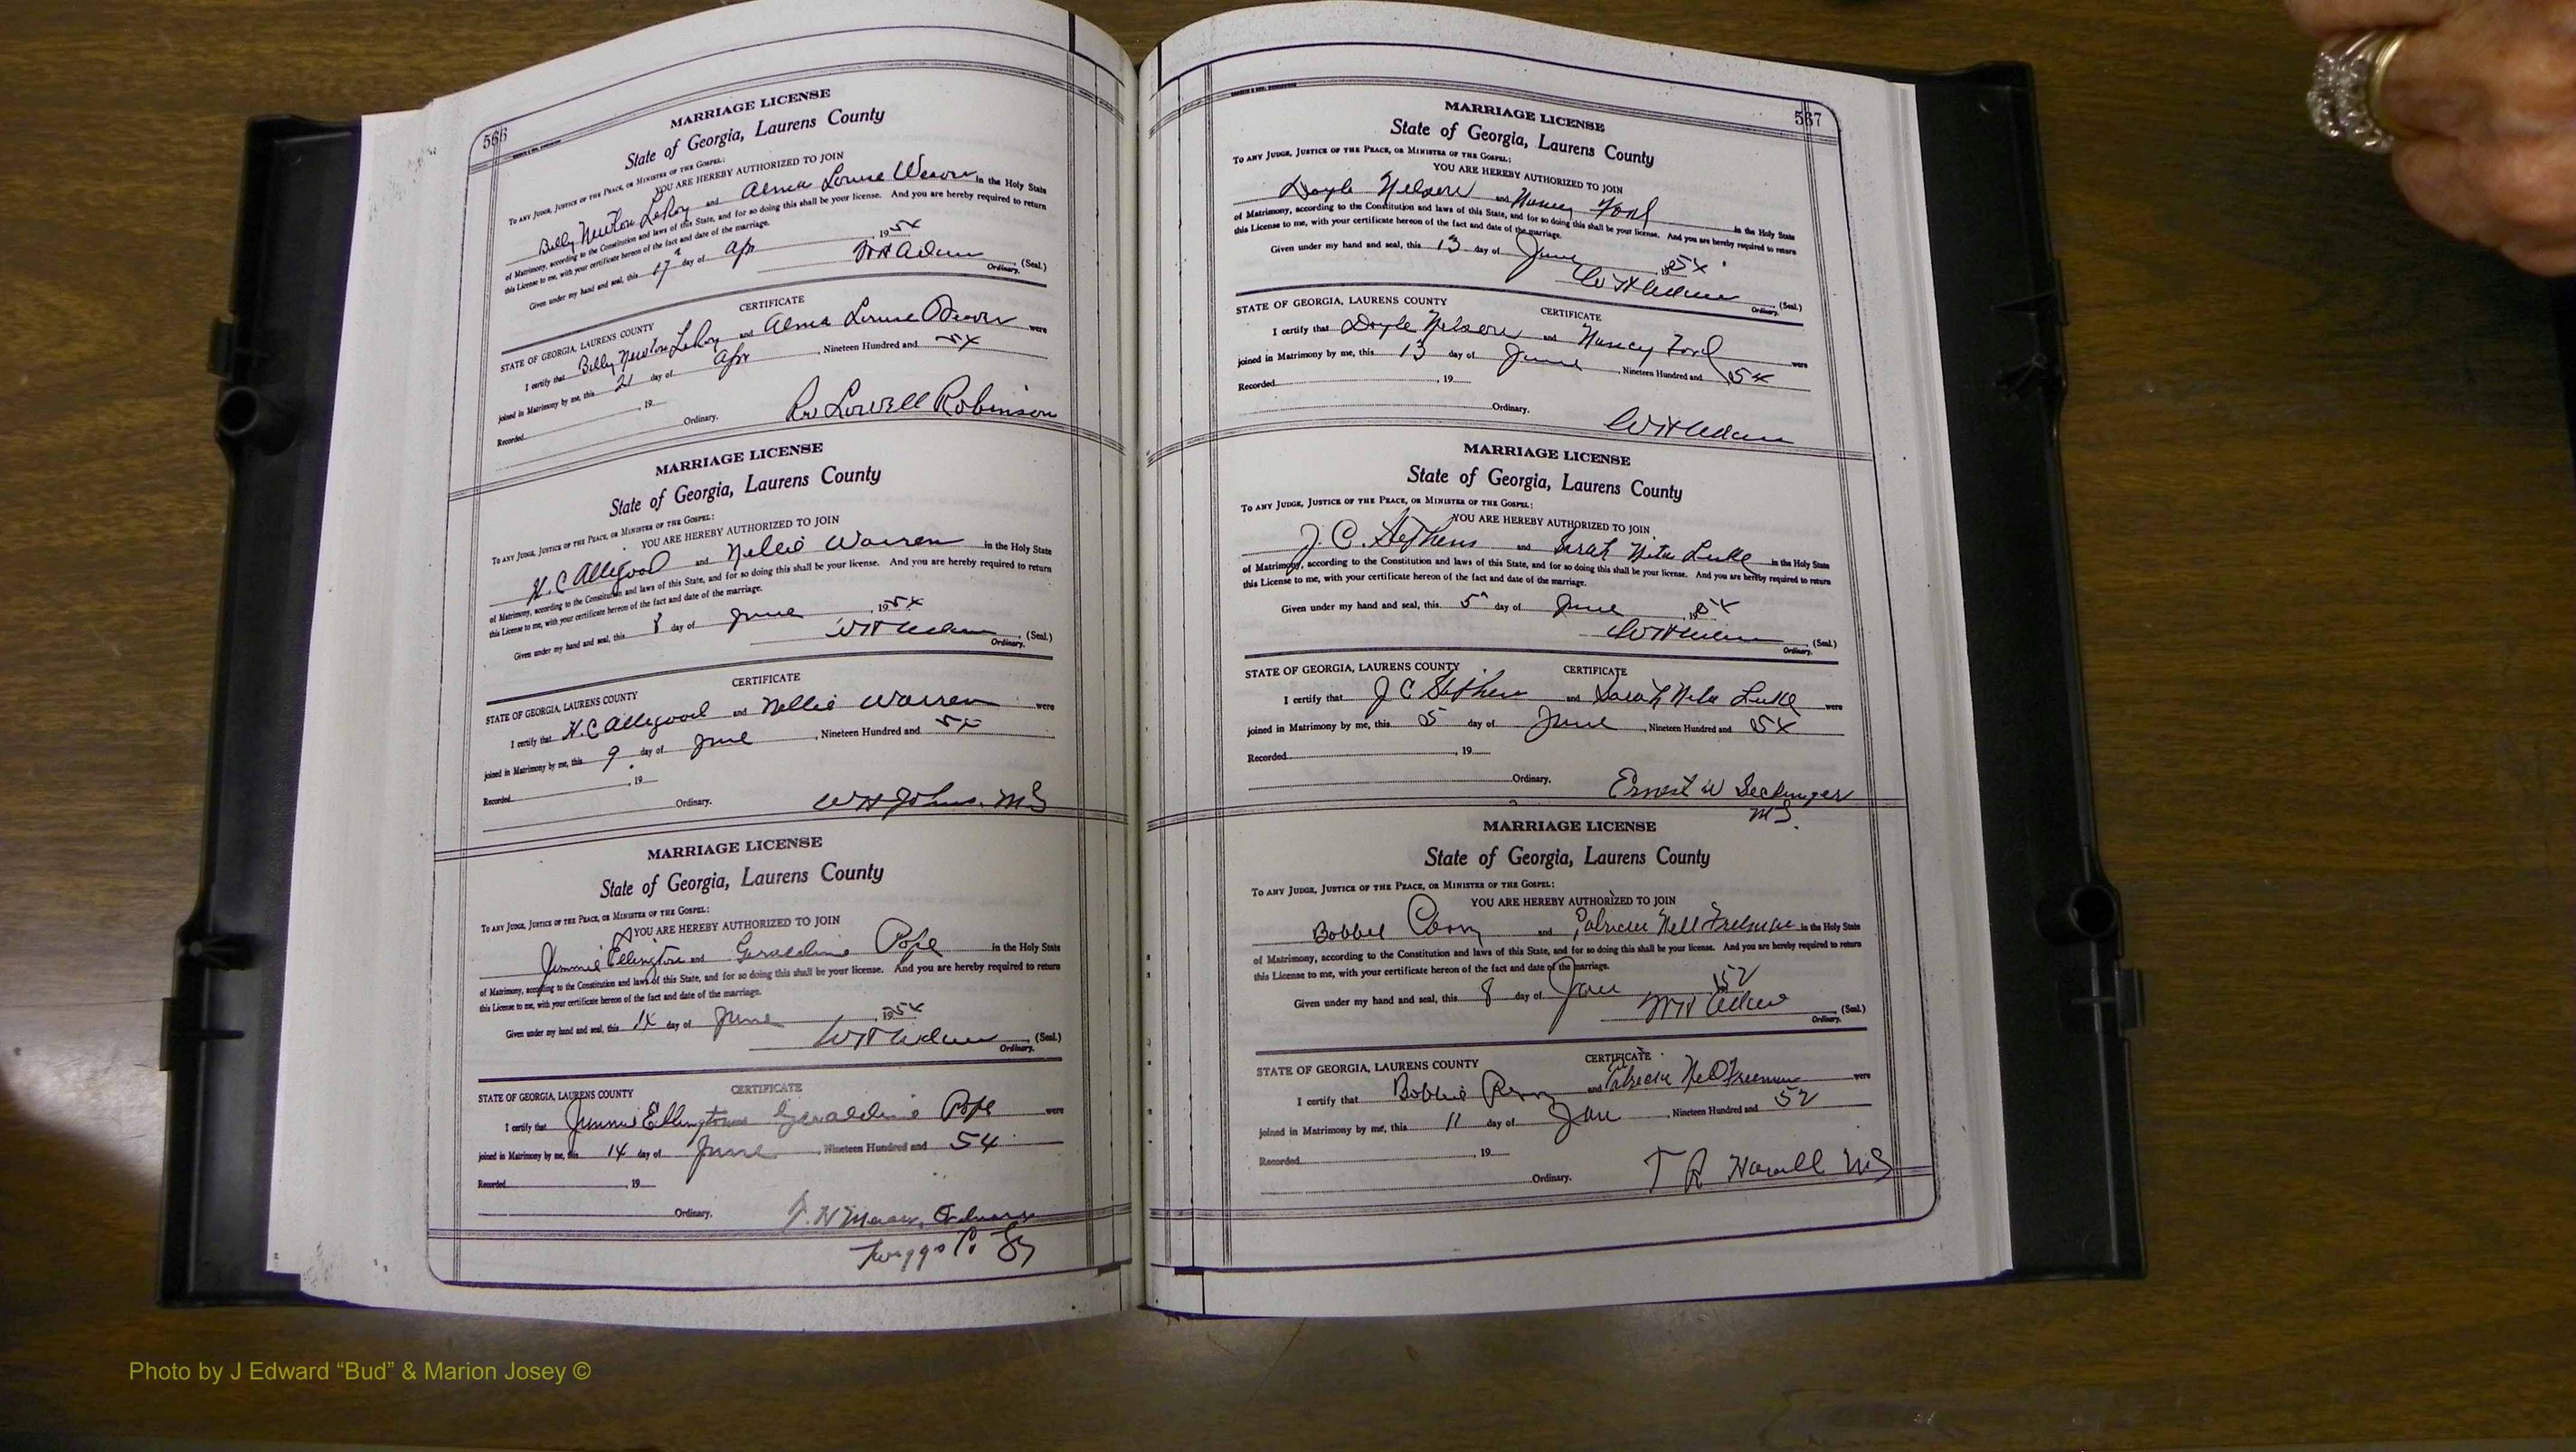 566
MARRIAGE LICENSE
State of Georgia, Laurens County
To any Judge, Justice of the Peace, or Minister of the Gospel:
YOU ARE HEREBY AUTHORIZED TO JOIN
Billy Newton LeRoy and Alma Louise Weaver in the Holy State
of Matrimony, according to the Constitution and laws of this State, and for so doing this shall be your license. And you are hereby required to return
this License to me, with your certificate hereon of the fact and date of the marriage.
Given under my hand and seal, this 17 day of Apr 1954
(Seal.)
Ordinary.
CERTIFICATE
STATE OF GEORGIA, LAURENS COUNTY
I certify that Billy Newton LeRoy and Alma Louise Weaver were
joined in Matrimony by me, this 21 day of Apr, Nineteen Hundred and 54
Recorded, 19
Ordinary.
Rev Lowell Robinson
MARRIAGE LICENSE
State of Georgia, Laurens County
To any Judge, Justice of the Peace, or Minister of the Gospel:
YOU ARE HEREBY AUTHORIZED TO JOIN
H. C Allegood and Nellie Warren in the Holy State
of Matrimony, according to the Constitution and laws of this State, and for so doing this shall be your license. And you are hereby required to return
this License to me, with your certificate hereon of the fact and date of the marriage.
Given under my hand and seal, this 8 day of June, 1954
(Seal.)
Ordinary.
CERTIFICATE
STATE OF GEORGIA, LAURENS COUNTY
I certify that H. C Allegood and Nellie Warren were
joined in Matrimony by me, this 9 day of June, Nineteen Hundred and 54
Recorded, 19
Ordinary.
W H Johns. MG
MARRIAGE LICENSE
State of Georgia, Laurens County
To any Judge, Justice of the Peace, or Minister of the Gospel:
YOU ARE HEREBY AUTHORIZED TO JOIN
Jimmie Ellington and Geraldine Pope in the Holy State
of Matrimony, according to the Constitution and laws of this State, and for so doing this shall be your license. And you are hereby required to return
this License to me, with your certificate hereon of the fact and date of the marriage.
Given under my hand and seal, this 14 day of June, 1954
(Seal.)
Ordinary.
CERTIFICATE
STATE OF GEORGIA, LAURENS COUNTY
I certify that Jimmie Ellington Geraldine Pope were
joined in Matrimony by me, this 14 day of June, Nineteen Hundred and 54
Recorded, 19
Ordinary.
Twiggs Co Ga
567
MARRIAGE LICENSE
State of Georgia, Laurens County
To any Judge, Justice of the Peace, or Minister of the Gospel:
YOU ARE HEREBY AUTHORIZED TO JOIN
Doyle Nelson and Nancy Ford in the Holy State
of Matrimony, according to the Constitution and laws of this State, and for so doing this shall be your license. And you are hereby required to return
this License to me, with your certificate hereon of the fact and date of the marriage.
Given under my hand and seal, this 13 day of June 1954
(Seal.)
Ordinary.
STATE OF GEORGIA, LAURENS COUNTY CERTIFICATE
I certify that Doyle Nelson and Nancy Ford were
joined in Matrimony by me, this 13 day of June, Nineteen Hundred and 54
Recorded, 19
Ordinary.
MARRIAGE LICENSE
State of Georgia, Laurens County
To any Judge, Justice of the Peace, or Minister of the Gospel:
YOU ARE HEREBY AUTHORIZED TO JOIN
J. C. Stephens and Sarah Nita Luke in the Holy State
of Matrimony, according to the Constitution and laws of this State, and for so doing this shall be your license. And you are hereby required to return
this License to me, with your certificate hereon of the fact and date of the marriage.
Given under my hand and seal, this 5 day of June 1954
(Seal.)
Ordinary.
STATE OF GEORGIA, LAURENS COUNTY CERTIFICATE
I certify that J C Stephens and Sarah Nita Luke were
joined in Matrimony by me, this 5 day of June, Nineteen Hundred and 54
Recorded, 19
Ordinary.
Ernest W Seckinger
MG.
MARRIAGE LICENSE
State of Georgia, Laurens County
To any Judge, Justice of the Peace, or Minister of the Gospel:
YOU ARE HEREBY AUTHORIZED TO JOIN
Bobbie Perry and Patricia Nell Freeman in the Holy State
of Matrimony, according to the Constitution and laws of this State, and for so doing this shall be your license. And you are hereby required to return
this License to me, with your certificate hereon of the fact and date of the marriage.
Given under my hand and seal, this 8 day of Jan 52
(Seal.)
Ordinary.
STATE OF GEORGIA, LAURENS COUNTY CERTIFICATE
I certify that Bobbie Perry and Patricia Nell Freeman were
joined in Matrimony by me, this 11 day of Jan, Nineteen Hundred and 52
Recorded, 19
Ordinary.
T R Harrell MG
Photo by J Edward “Bud” & Marion Josey ©